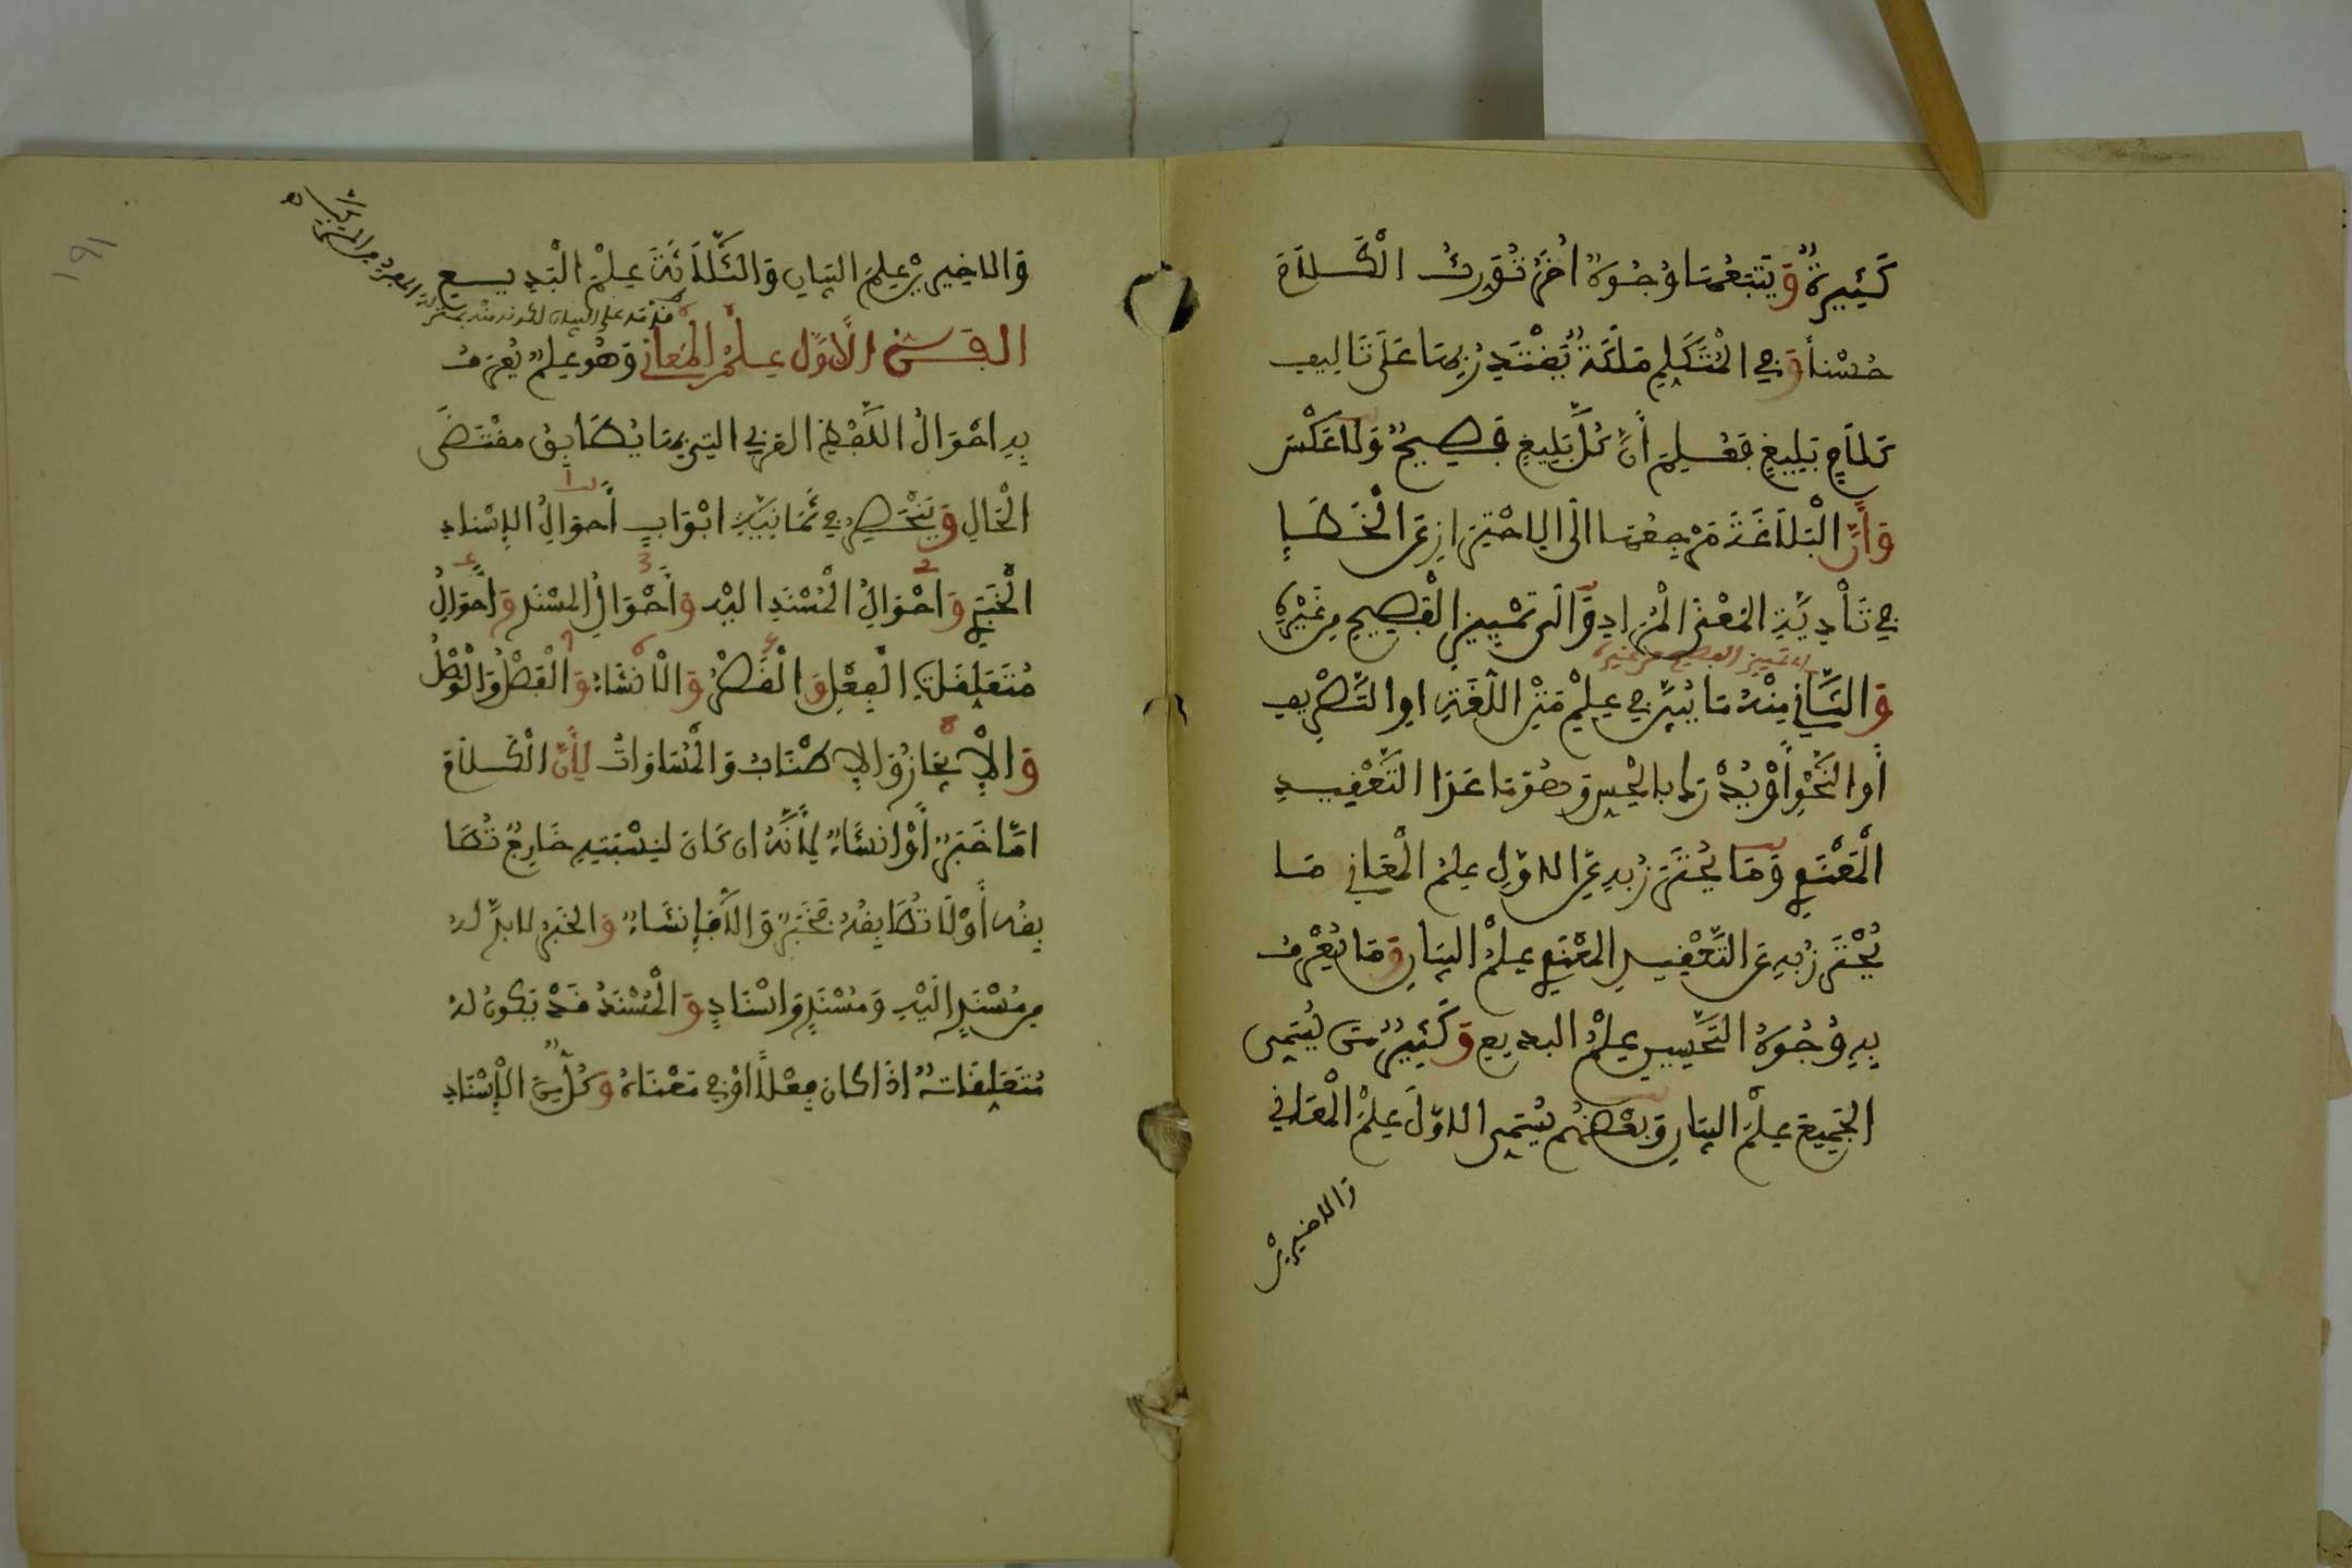 كَثِيرَةٌ وَيَتْبَعُهَا وُجُوهٌ اُخَرُ تُورِثُ الْكَلاَمَ
حُسْناً وَفِي الْمُتَكَلِّمِ مَلَكَةٌ يُقْتَدَرُ بِهَا عَلَى تَالِيفِ
كَلاَمٍ بَلِيغٍ فَعُلِمَ أَنَّ كُلَّ بَلِيغٍ فَصِيحٌ وَلاَ عَكْسَ
وَأَنَّ الْبَلاَغَةَ مَرْجِعُهَا الَى الاِحْتِرَازِ عَنِ الْخَطَإِ
فِي تَأْدِيَّةِ الْمَعْنَى الْمُرَادِ وَالَى تَمْيِيزِ الْفَصِيحِ مِن غَيْرِهِ
اى تمييز الفصيح من غيره
وَالثَّانِي مِنْهُ مَا يُبَيَّنُ فِي عِلْمِ مَتْنِ اللُّغَةِ اوِ التَّصْرِيفِ
أَوِ النَّحْوِ أَوْ يُدْرَكُ بِالْحِسِّ وَهُوَ مَا عَدَا التَّعْقِيدِ
الْمَعْنَوِي وَمَا يُحْتَرَزُ بِهِ عَنِ الاوَّلِ عِلْمُ الْمَعَانِي وَمَا
يُحْتَرَزُ بِهِ عَنِ التَّعْقِيدِ الْمَعْنَوِي عِلْمُ الْبَيَانِ وَمَا يُعْرَفُ
بِهِ وُجُوهُ التَّحْسِينِ عِلْمُ البديعِ وَكَثِيرٌ مَّن يُسَمِّى
الْجَمِيعَ عِلْمَ الْبَيَانِ وَبَعْضُهُمْ يُسَمِّى الاوَّلَ عِلْمَ الْمَعَانِي
والاخيرين
١٩١
وَالاخِيرَيْنِ عِلْمَ البَيَانِ وَالثَّلاَثَةَ عِلْمَ الْبَدِيعِ
قدمه على البيان لكونه منه بمنزلة المفرد من المركب
الفَنُّ الأَوَّلُ عِلْمُ الْمَعَانِي وَهُوَ عِلْمٌ يُعْرَفُ
بِهِ احْوَالُ اللَّفْظِ الْعَرَبِي التِي بِهَا يُطَابِقُ مُقْتَضَى
الْحَالِ وَيَنْحَصِرُ فِي ثَمَانِيَةِ ابْوَابٍ أَحْوَالُ الاِسْنَادِ
الْخَبَرِي وَاحْوَالُ الْمُسْنَدِ الَيْهِ وَأَحْوَالُ الْمُسْنَدِ وَأَحْوَالُ
مُتَعَلِّقَاتِ الْفِعْلِ وَالْقَصْرُ وَالاِنْشَاءُ وَالْفَصْلُ وَالْوَصْلُ
وَالإِيجَازُ وَالاِطْنَابُ وَالْمُسَاوَاتُ لِأَنَّ الْكَلاَمَ
امَّا خَبَرٌ أَوْ انشَاءٌ لِأَنَّهُ ان كَانَ لِنِسْبَتِهِ خَارِجٌ تُطَا
بِقُهُ أَوْ لاَ تُطَابِقُهُ فَخَبَرٌ وَالاَّ فَإِنشَاءٌ وَالخَبَرُ لاَ بُدَّ لَهُ
مِن مُسْنَدٍ الَيْهِ وَمُسْنَدٍ وَاسْنَادٍ وَالْمُسْنَدُ قَدْ يَكُونُ لَهُ
مُتَعَلِّقَاتٌ اذَا كَانَ فِعْلاً أَوْ فِي مَعْنَاهُ وَكُلٌّ مِّنَ الاِسْنَادِ